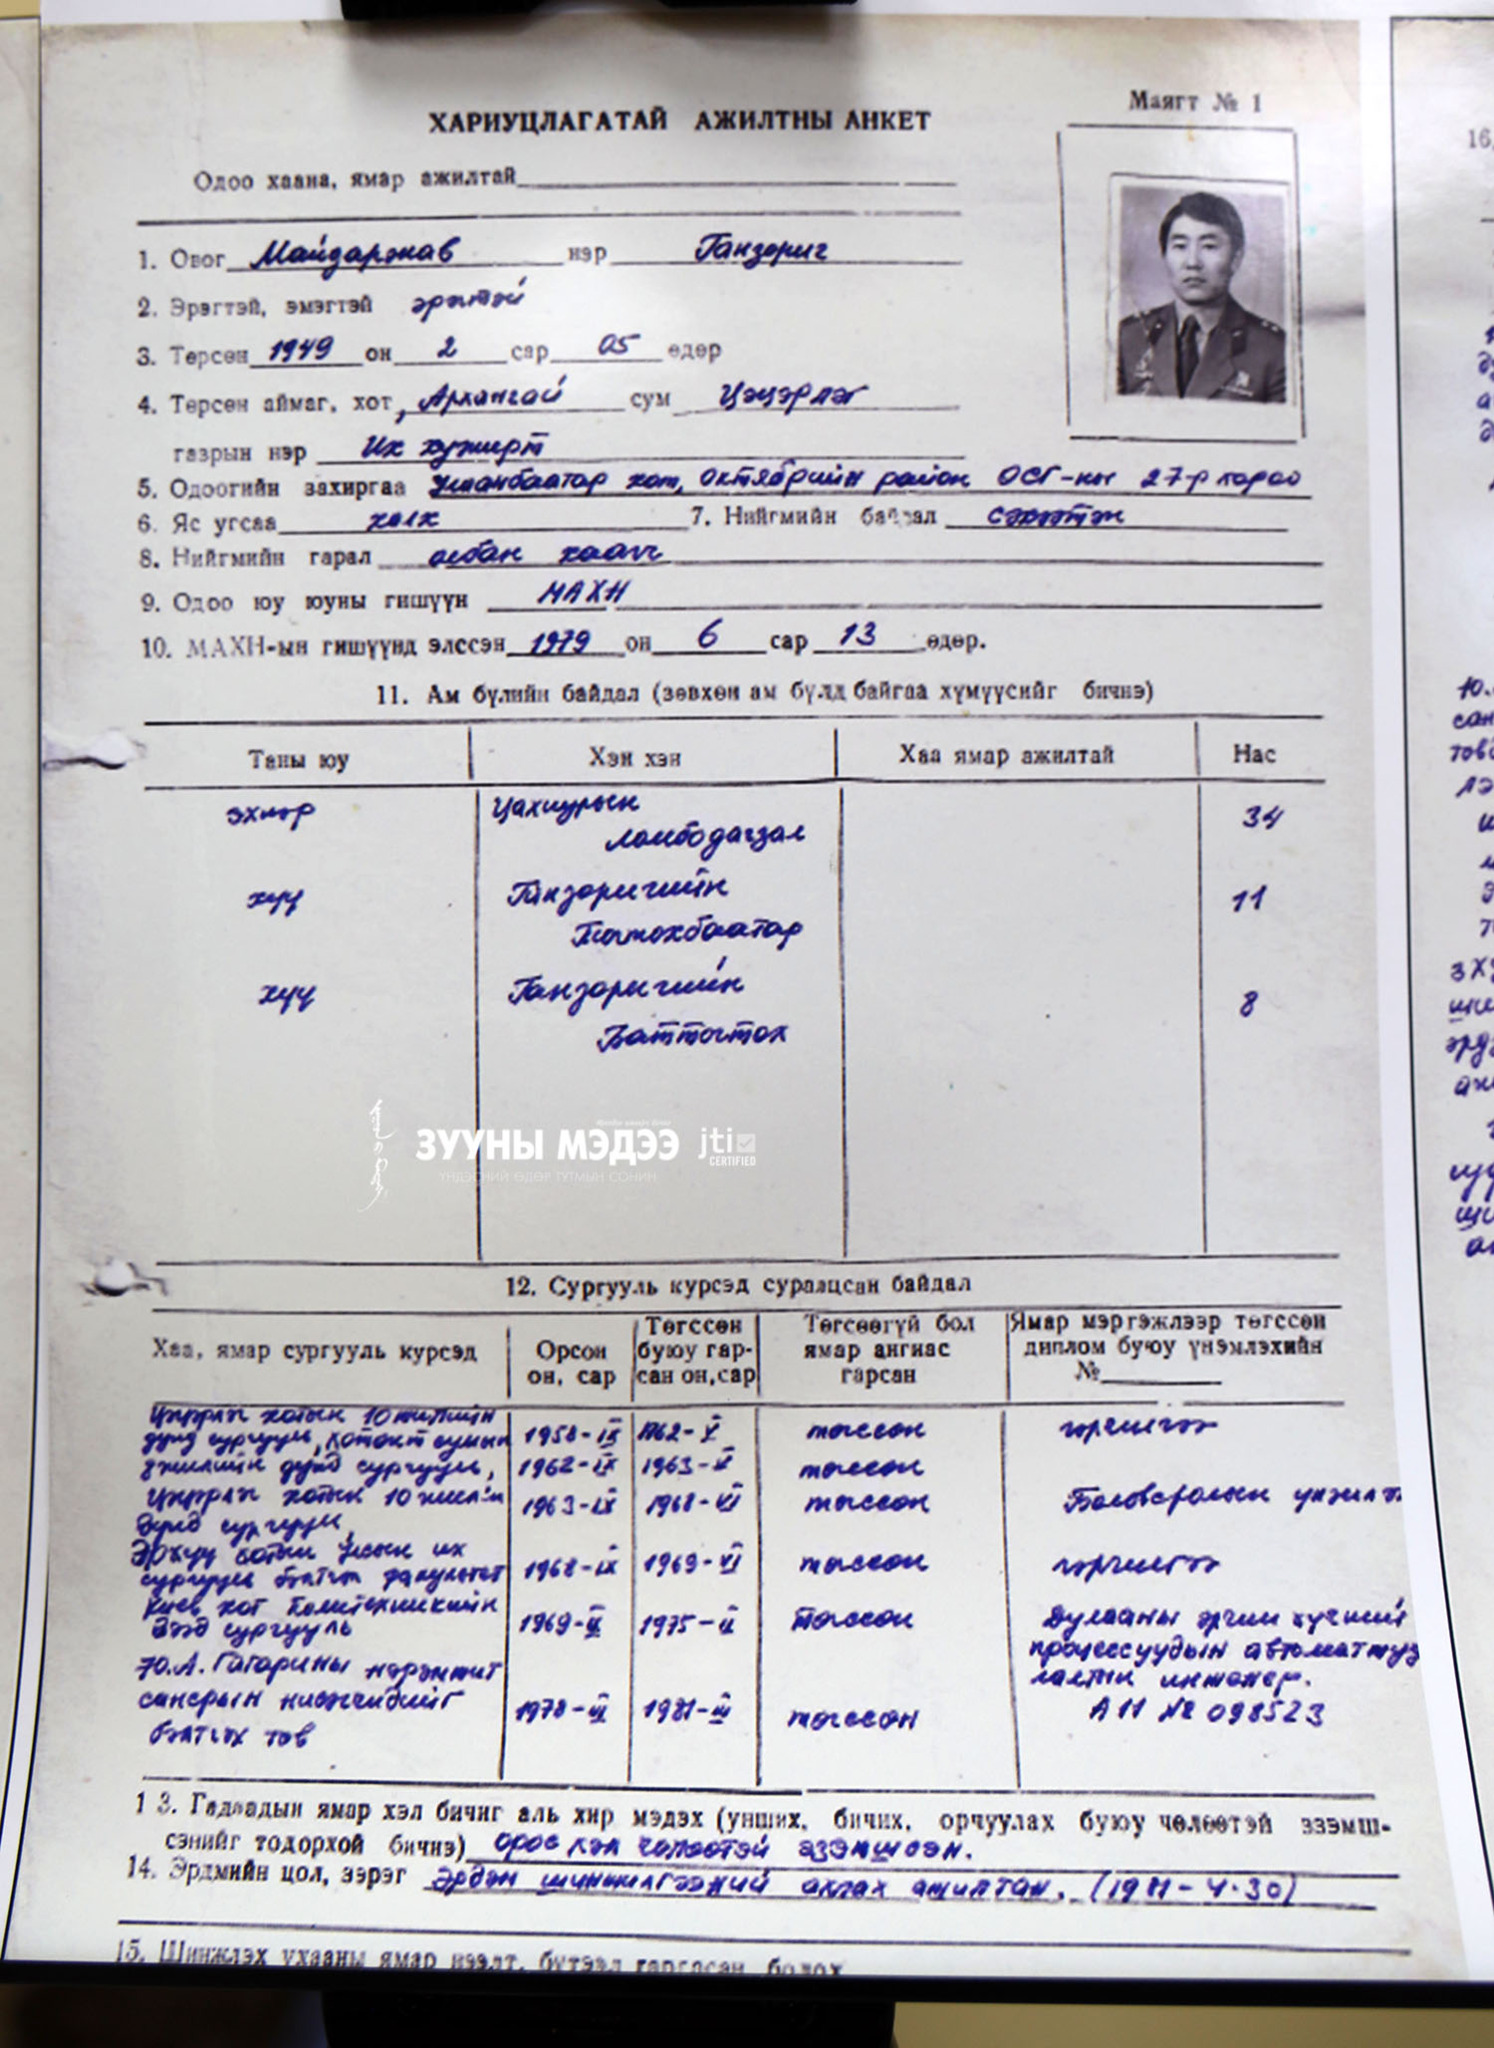 Маягт № 1
ХАРИУЦЛАГАТАЙ АЖИЛТНЫ АНКЕТ
Одоо хаана, ямар ажилтай
1. Овог Майдаржав нэр Ганзориг
2. Эрэгтэй, эмэгтэй эрэгтэй
3. Төрсөн 1949 он 2 сар 05 өдөр
4. Төрсөн аймаг, хот, Архангай сум Цэцэрлэг
газрын нэр Их хужирт
5. Одоогийн захиргаа Улаанбаатар хот, Октябрийн район ОСГ-ны 27-р хороо
6. Яс угсаа халх 7. Нийгмийн байдал сэхээтэн
8. Нийгмийн гарал албан хаагч
9. Одоо юу юуны гишүүн МАХН
10. МАХН-ын гишүүнд элссэн 1979 он 6 сар 13 өдөр.
11. Ам бүлийн байдал (зөвхөн ам бүлд байгаа хүмүүсийг бичнэ)
Таны юу Хэн хэн Хаа ямар ажилтай Нас
эхнэр Цахиурын 34
Ломбодагзал
хүү Ганзоригийн 11
Тогтохбаатар
хүү Ганзоригийн 8
Баттогтох
ЗУУНЫ МЭДЭЭ jti CERTIFIED
ҮНДЭСНИЙ ӨДӨР ТУТМЫН СОНИН
12. Сургууль курсэд суралцсан байдал
Хаа, ямар сургууль курсэд
Орсон он, сар
Төгссөн буюу гарсан он, сар
Төгсөөгүй бол ямар ангиас гарсан
Ямар мэргэжлээр төгссөн диплом буюу үнэмлэхийн №
Цэцэрлэг хотын 10 жилийн
дунд сургууль, Хотонт сумын 1958-IX 1962-V төгссөн гэрчилгээ
жилийн дунд сургууль, 1962-IX 1963-V төгссөн
Цэцэрлэг хотын 10 жилийн 1963-IX 1968-VI төгссөн Боловсролын үнэмлэх
дунд сургууль,
Эрхүү хотын Улсын их
сургууль бэлтгэл факультет 1968-IX 1969-VI төгссөн гэрчилгээ
Киев хот Политехникийн
дээд сургууль 1969-II 1975-II төгссөн Дулааны эрчим хүчний
процессуудын автоматжуу
Ю.А. Гагарины нэрэмжит лалтын инженер.
сансрын нисэгчдийг 1978-III 1981-III төгссөн А 11 № 098523
бэлтгэх төв
13. Гадаадын ямар хэл бичиг аль хир мэдэх (унших, бичих, орчуулах буюу чөлөөтэй эзэмш-
сэнийг тодорхой бичнэ) орос хэл чөлөөтэй эзэмшсэн.
14. Эрдмийн цол, зэрэг Эрдэм шинжилгээний ахлах ажилтан. (1981-4.30)
15. Шинжлэх ухааны ямар нээлт, бүтээл гаргасан болох